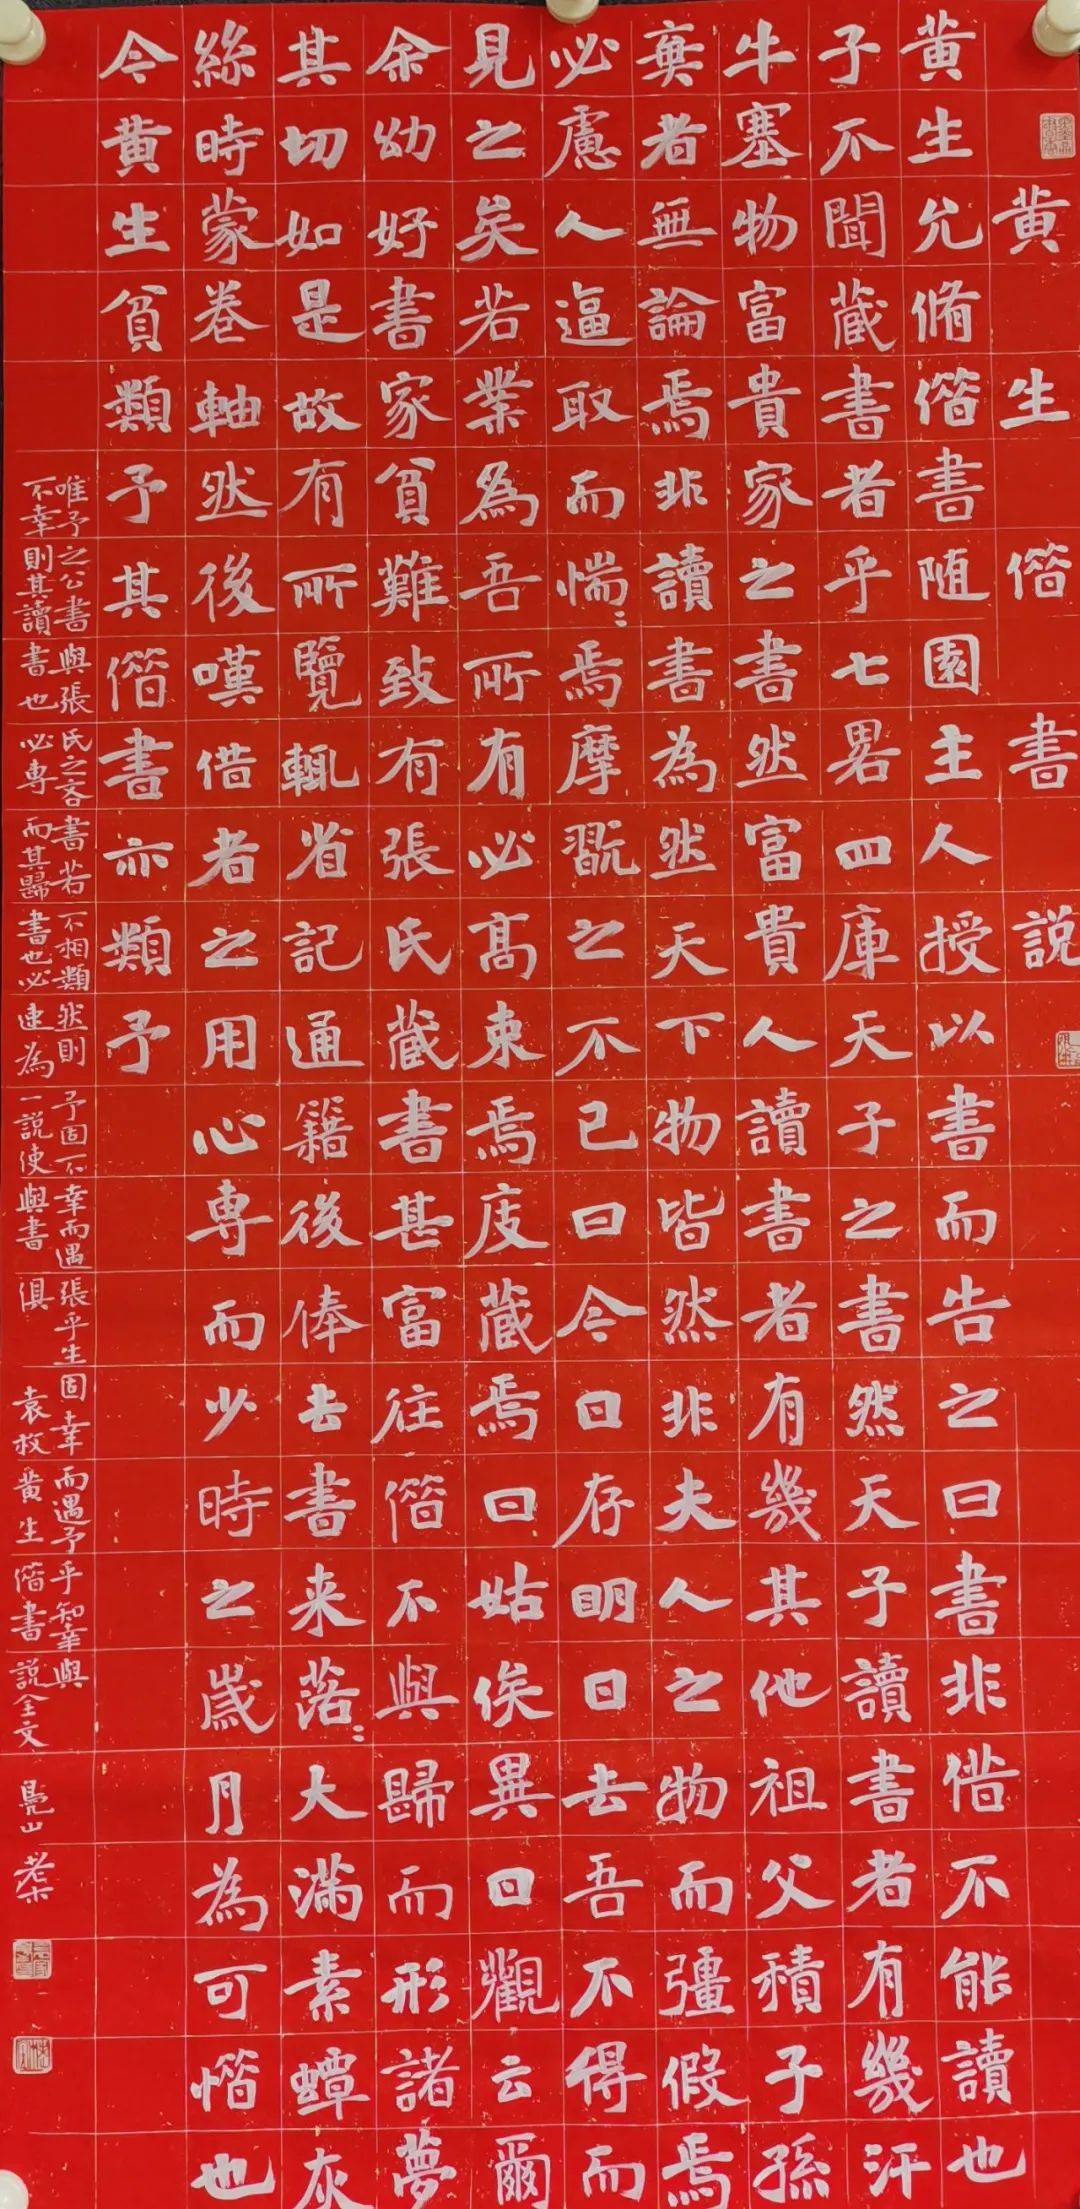 黄生借書説
黄生允脩借書随園主人授以書而告之曰書非借不能讀也
子不聞藏書者乎七畧四庫天子之書然天子讀書者有幾汗
牛塞物富貴家之書然富貴人讀書者有幾其他祖父積子孫
棄者無論焉非讀書為然天下物皆然非夫人之物而彊假焉
必慮人逼取而惴〻焉摩翫之不已曰今日存明日去吾不得而
見之矣若業為吾所有必高束焉庋藏焉曰姑俟異日觀云爾
余幼好書家貧難致有張氏藏書甚富往借不與歸而形諸夢
其切如是故有所覽輒省記通籍後俸去書来落〻大滿素蟫灰
絲時蒙卷軸然後嘆借者之用心專而少時之歲月為可惜也
今黄生貧類予其借書亦類予
唯予之公書與張氏之吝書若不相類然則予固不幸而遇張乎生固幸而遇予乎知幸與
不幸則其讀書也必專而其歸書也必速為一說使與書俱 袁枚黄生借書說全文